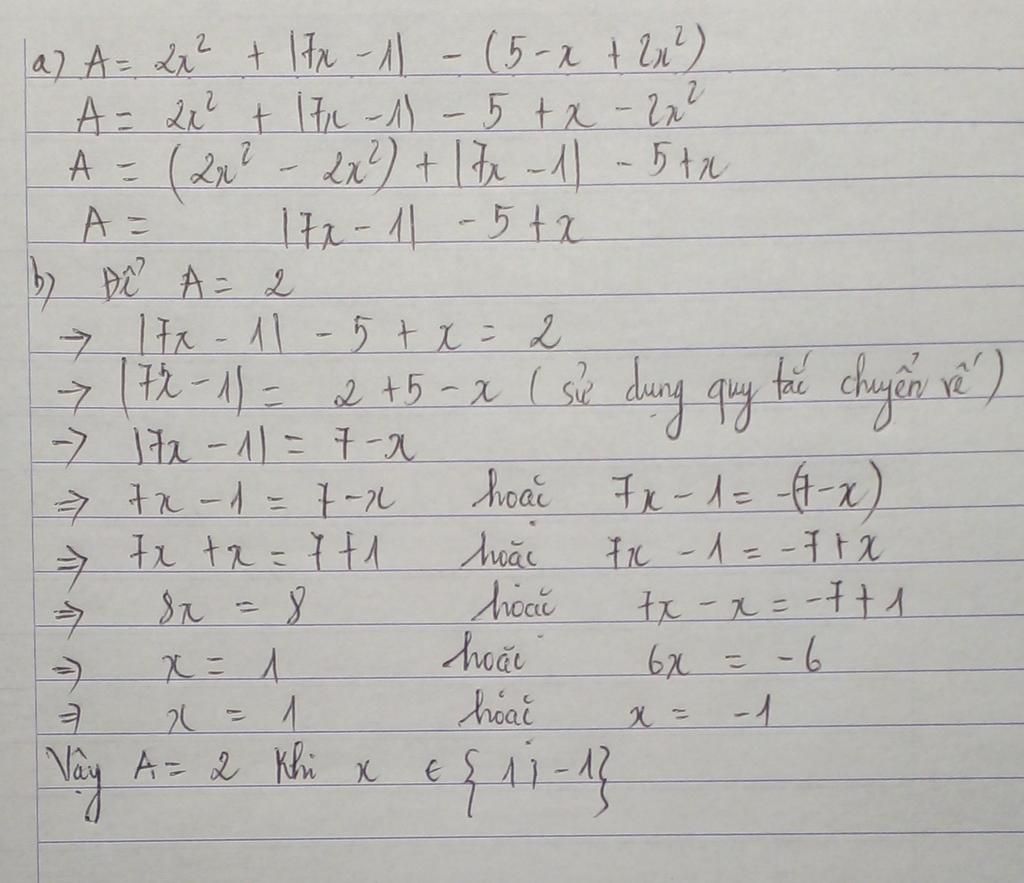 a) A = 2x² + |7x - 1| - (5 - x + 2x²)
A = 2x² + |7x - 1| - 5 + x - 2x²
A = (2x² - 2x²) + |7x - 1| - 5 + x
A = |7x - 1| - 5 + x
b) Để A = 2
→ |7x - 1| - 5 + x = 2
→ |7x - 1| = 2 + 5 - x (sử dụng quy tắc chuyển vế)
→ |7x - 1| = 7 - x
⇒ 7x - 1 = 7 - x hoặc 7x - 1 = -(7 - x)
⇒ 7x + x = 7 + 1 hoặc 7x - 1 = -7 + x
⇒ 8x = 8 hoặc 7x - x = -7 + 1
⇒ x = 1 hoặc 6x = -6
⇒ x = 1 hoặc x = -1
Vậy A = 2 Khi x ∈ {1; -1}